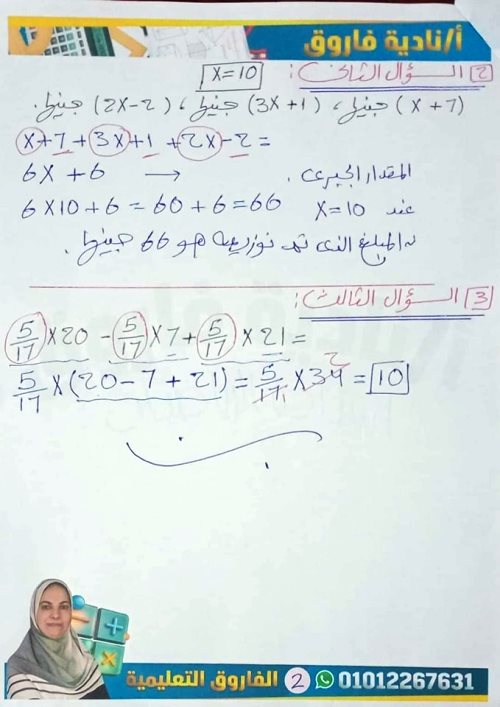 أ/نادية فاروق
2 السؤال الثانى : x=10
(x+7) جنيها ، (3x+1) جنيها ، (2x-2) جنيها .
x+7+3x+1+2x-2=
6x+6 → المقدار الجبرى .
6x10+6=60+6=66 x=10 عند
∴ المبلغ الذى تم توزيعه هو 66 جنيها .
3 السؤال الثالث :
5/17 ×20 - 5/17 ×7 + 5/17 ×21 =
5/17 ×(20-7+21) = 5/17 ×34 2 = 10
الفاروق التعليمية 2 01012267631